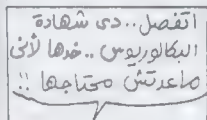 اتفضل.. دى شهادة
البكالوريوس.. خدها لأنى
ماعدتش محتاجها !!